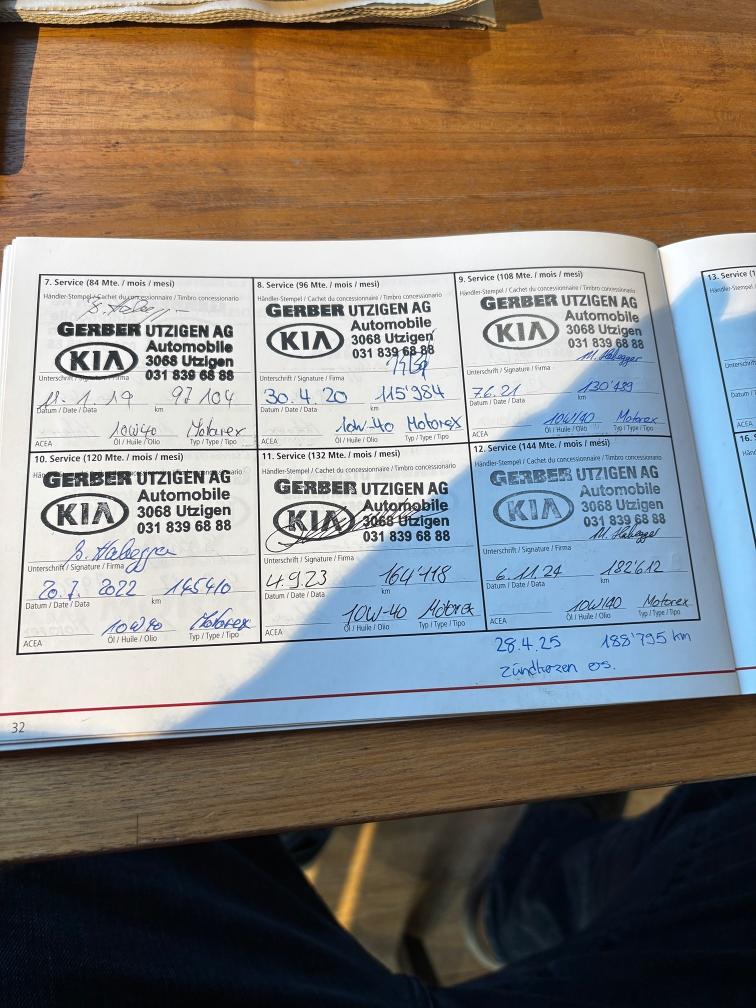 7. Service (84 Mte. / mois / mesi)
Händler-Stempel / Cachet du concessionnaire / Timbro concessionario
GERBER UTZIGEN AG
KIA
Automobile
3068 Utzigen
031 839 68 88
Unterschrift / Signature / Firma
11.1.19 97'104
Datum / Date / Data km
10W40 Motorex
ACEA Öl / Huile / Olio Typ / Type / Tipo
8. Service (96 Mte. / mois / mesi)
Händler-Stempel / Cachet du concessionnaire / Timbro concessionario
GERBER UTZIGEN AG
KIA
Automobile
3068 Utzigen
031 839 68 88
Unterschrift / Signature / Firma
30.4.20 115'984
Datum / Date / Data km
10W-40 Motorex
ACEA Öl / Huile / Olio Typ / Type / Tipo
9. Service (108 Mte. / mois / mesi)
Händler-Stempel / Cachet du concessionnaire / Timbro concessionario
GERBER UTZIGEN AG
KIA
Automobile
3068 Utzigen
031 839 68 88
Unterschrift / Signature / Firma
7.6.21
Datum / Date / Data km
10W40 Motorex
ACEA Öl / Huile / Olio Typ / Type / Tipo
10. Service (120 Mte. / mois / mesi)
GERBER UTZIGEN AG
KIA
Automobile
3068 Utzigen
031 839 68 88
Unterschrift / Signature / Firma
20.7.2022 145410
Datum / Date / Data km
10W40 Motorex
ACEA Öl / Huile / Olio Typ / Type / Tipo
11. Service (132 Mte. / mois / mesi)
Händler-Stempel / Cachet du concessionnaire / Timbro concessionario
GERBER UTZIGEN AG
KIA
Automobile
3068 Utzigen
031 839 68 88
Unterschrift / Signature / Firma
4.9.23 164'418
Datum / Date / Data km
10W-40 Motorex
ACEA Öl / Huile / Olio Typ / Type / Tipo
12. Service (144 Mte. / mois / mesi)
Händler-Stempel / Cachet du concessionnaire / Timbro concessionario
GERBER UTZIGEN AG
KIA
Automobile
3068 Utzigen
031 839 68 88
Unterschrift / Signature / Firma
6.11.24 182'612
Datum / Date / Data km
10W40 Motorex
ACEA Öl / Huile / Olio Typ / Type / Tipo
28.4.25 188'795 km
Zündkerzen ers.
32
13. Service
Händler-Stempel
Unterschrift
Datum
ACEA
16.